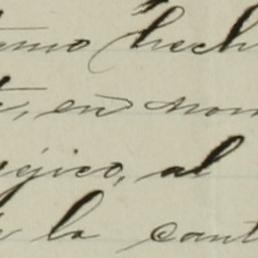 tmo hech
, en nom
égico, al
la cant